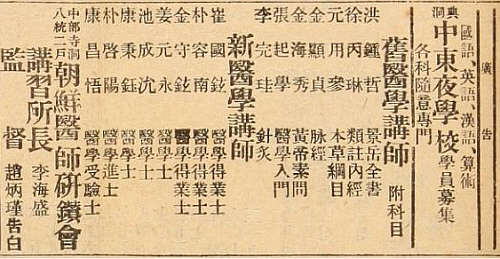 廣告
國語、英語、漢語、算術
典洞 中東夜學校 學員募集
各科隨意專門
舊醫學講師 附科目
洪鍾哲 景岳全書
徐丙琳 類註內經
元用參 本草綱目
金顯貞 脈經
金海秀 黃帝素問
張起學 醫學入門
李完珪 針炙
新醫學講師
崔國鉉 醫學得業士
朴容南 醫學得業士
金守鉉 醫學得業士
姜元永 醫學士
池成沇 醫學士
康秉鈺 醫學士
朴啓陽 醫學進士
康昌悟 醫學受驗士
中部寺洞八統二戶 朝鮮醫師研鑽會
講習所長 李海盛
監督 趙炳瑾告白